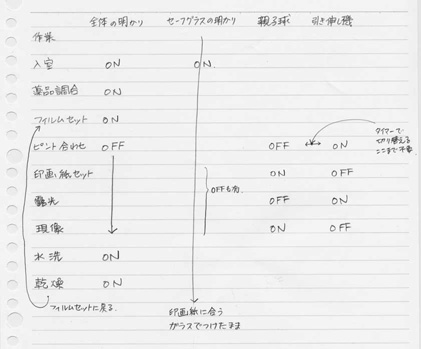 全体の明かり セーフグラスの明かり 親子球 引き伸し機
作業
入室 ON ON
薬品調合 ON
フィルムセット ON
ピント合わせ OFF OFF ↔ ON
タイマーで
切り替える
ここまで不要
印画紙セット ON OFF
露光 OFF ON
OFFも有
現像 ON OFF
水洗 ON
乾燥 ON
フィルムセットに戻る
印画紙に合う
ガラスでつけたまま